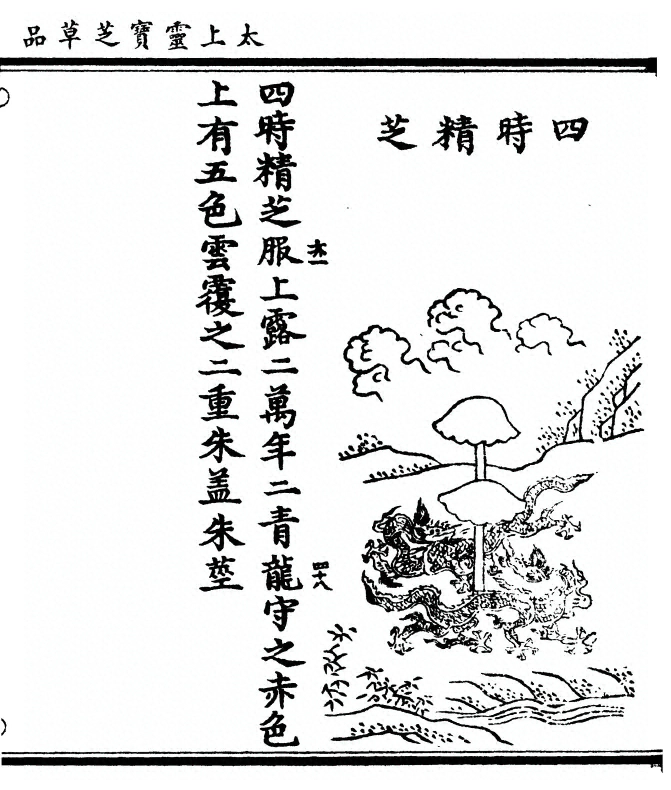 太上靈寶芝草品
四時精芝
四時精芝服上露二萬年二青龍守之赤色
上有五色雲覆之二重朱盖朱莖